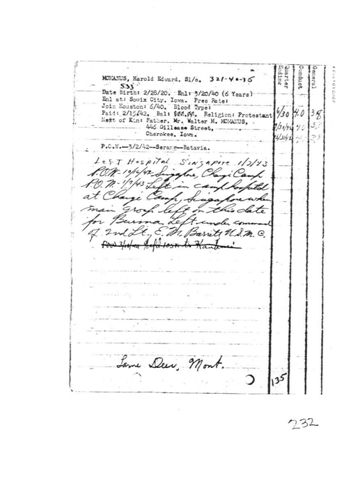 McMANUS, Harold Edward. S1/c. 321-40-36
Date Birth: 2/28/20. Enl: 3/20/40 (6 Years)
Enl at: Sioux City, Iowa. Prev Rate:
Join Houston: 6/40. Blood Type:
Paid: 2/15/42. Bal: Religion: Protestant
Next of Kin: Father, Mr. Walter M. McMANUS,
446 Gillease Street,
Cherokee, Iowa.
P.O.W.—3/2/42—Serang—Batavia.
Left Hospital Singapore 1/3/43
Singapore, Changi Camp
P.O.W. Left in camp hospital
at Changi Camp, Singapore when
main group left on this date
for Burma. Left under command
of 2nd Lt. E. M. Barrett U.S.M.C.
Lame Deer, Mont.
Quarter
Ending
Conduct
General
135
232